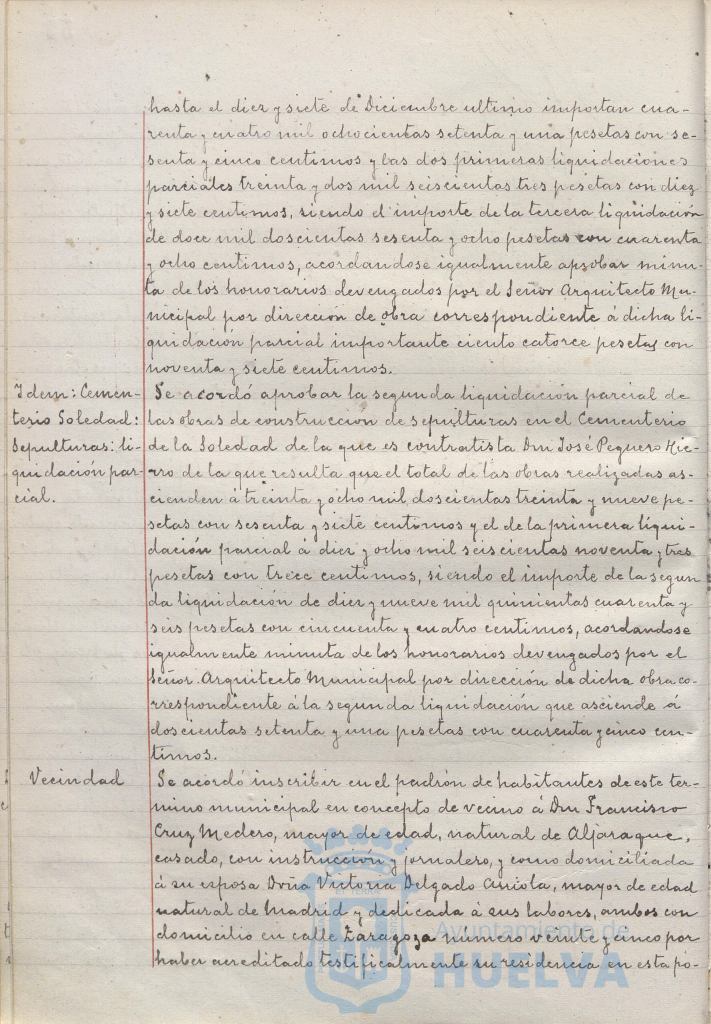 hasta el diez y siete de Diciembre ultimo importan cua-
renta y cuatro mil ochocientas setenta y una pesetas con se-
senta y cinco centimos y las dos primeras liquidaciones
parciales treinta y dos mil seiscientas tres pesetas con diez
y siete centimos, siendo el importe de la tercera liquidación
de doce mil doscientas sesenta y ocho pesetas con cuarenta
y ocho centimos, acordandose igualmente aprobar minu-
ta de los honorarios devengados por el Señor Arquitecto Mu-
nicipal por dirección de obra correspondiente á dicha li-
quidacion parcial importante ciento catorce pesetas con
noventa y siete centimos.
Idem: Cemen-
terio Soledad:
Sepulturas: li-
quidación par-
cial.
Se acordó aprobar la segunda liquidación parcial de
las obras de construccion de sepulturas en el Cementerio
de la Soledad de la que es contratista Don José Peguero Hie-
rro de la que resulta que el total de las obras realizadas as-
cienden á treinta y ocho mil doscientas treinta y nueve pe-
setas con sesenta y siete centimos y el de la primera liqui-
dación parcial á diez y ocho mil seiscientas noventa y tres
pesetas con trece centimos, siendo el importe de la segun
da liquidación de diez y nueve mil quinientas cuarenta y
seis pesetas con cincuenta y cuatro centimos, acordandose
igualmente minuta de los honorarios devengados por el
Señor Arquitecto Municipal por dirección de dicha obra co-
rrespondiente á la segunda liquidación que asciende á
doscientas setenta y una pesetas con cuarenta y cinco cen-
timos.
Vecindad
Se acordó inscribir en el padrón de habitantes de este ter-
mino municipal en concepto de vecino á Don Francisco
Cruz Medero, mayor de edad, natural de Aljaraque,
casado, con instrucción y jornalero, y como domiciliada
á su esposa Doña Victoria Delgado mayor de edad
natural de Madrid y dedicada á sus labores, ambos con
domicilio en calle Zaragoza número veinte y cinco por
haber acreditado testificalmente su residencia en esta po-
Ayuntamiento de
HUELVA